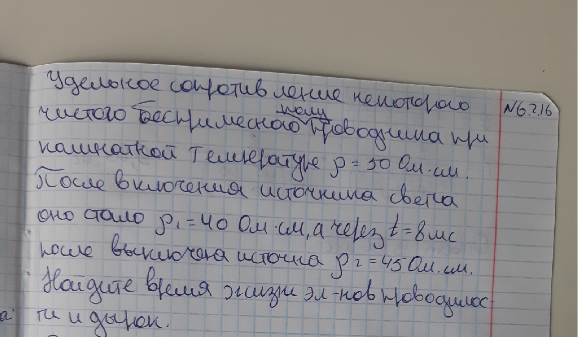 Удельное сопротивление некоторого
№6.216
чистого беспримесного полупроводника при
комнатной температуре ρ = 50 Ом·см.
После включения источника света
оно стало ρ₁ = 40 Ом·см, а через t = 8 мс
после выключена источка ρ₂ = 45 Ом·см.
Найдите время жизни эл-нов проводимос-
ти и дырок.
а